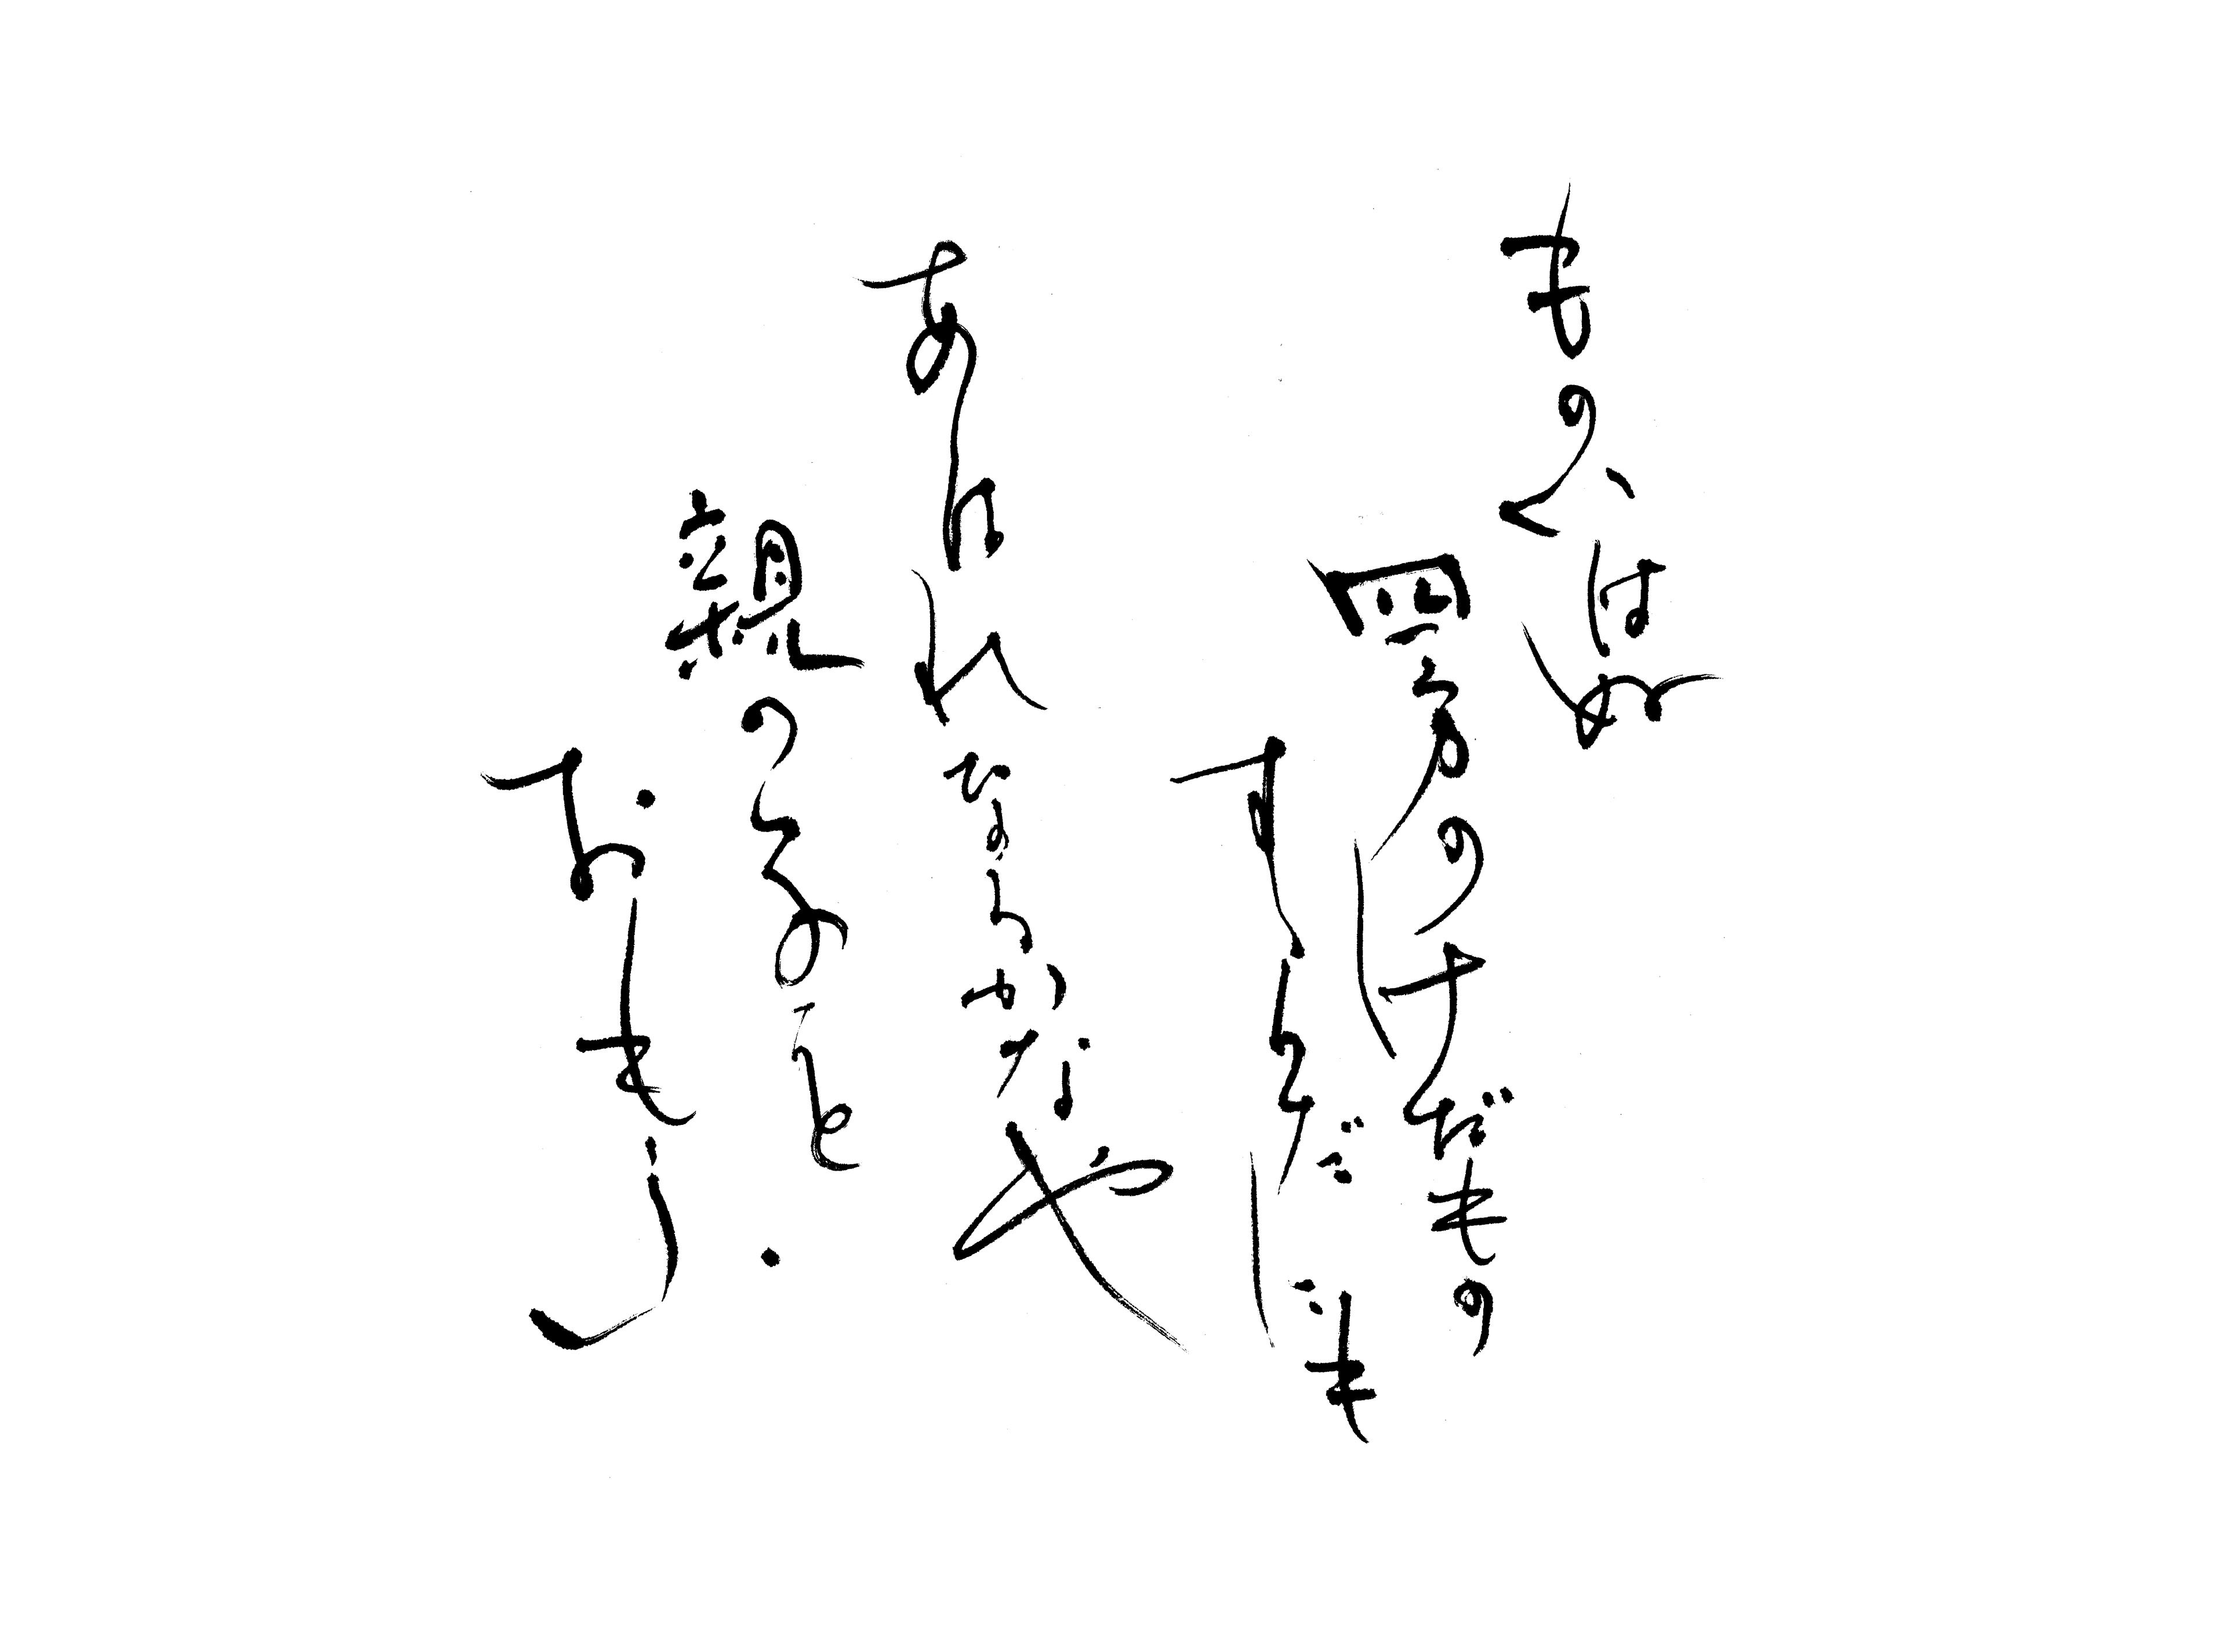 ものいはぬ
四方のけだもの
すらだにも
あはれなるかなや
親の子を
おもふ